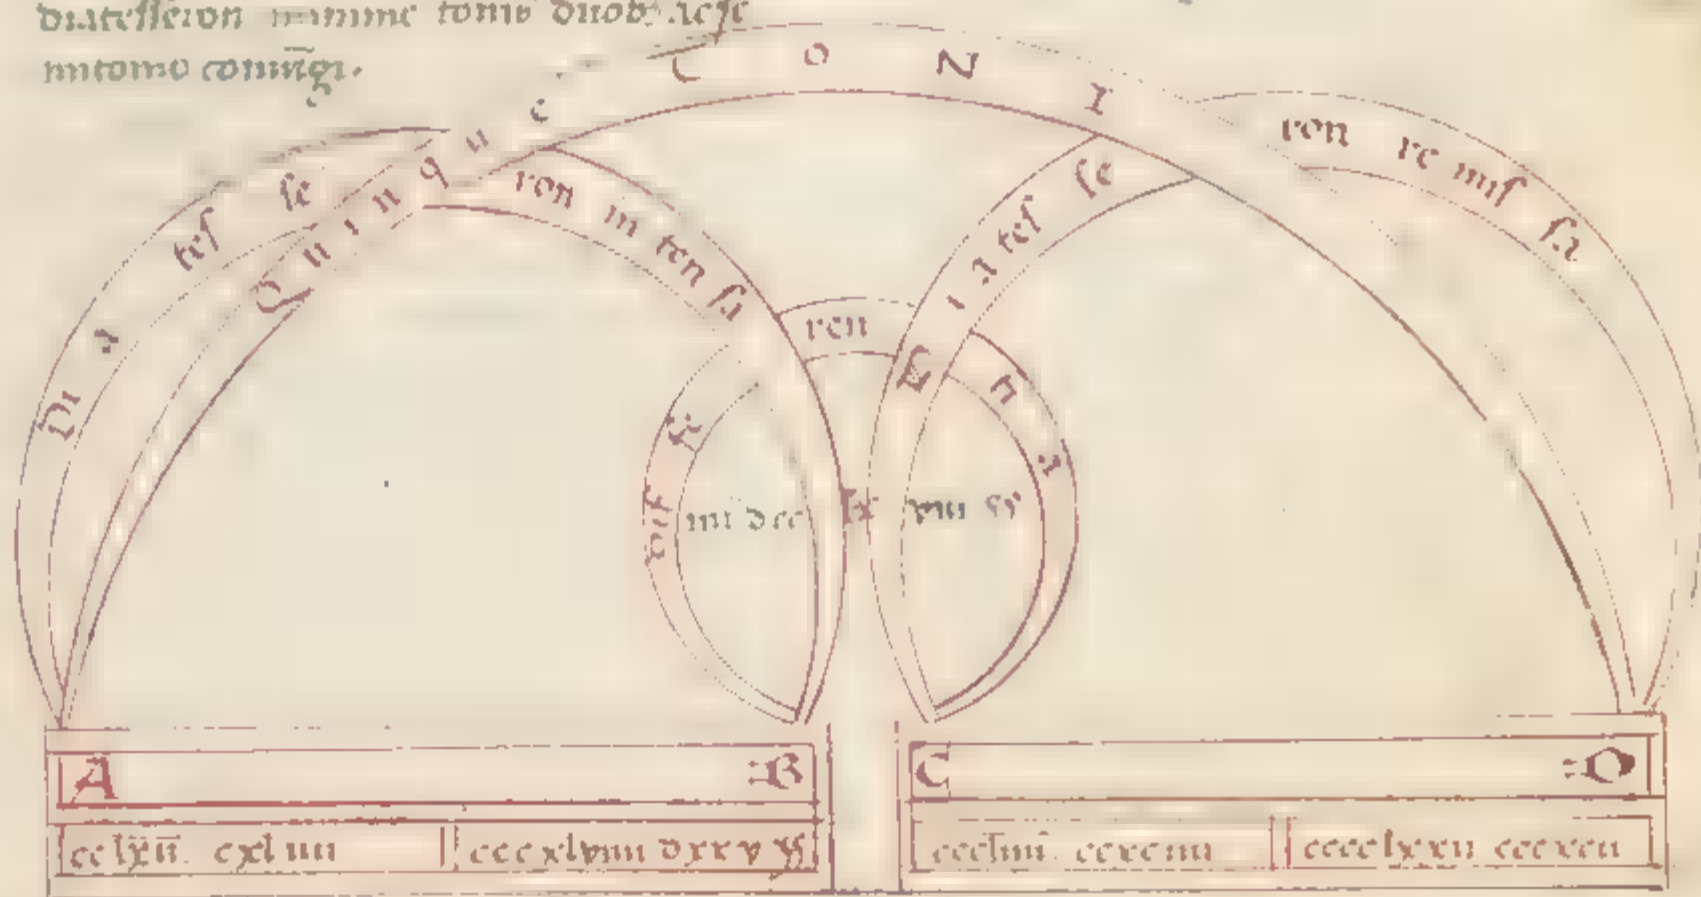 diatesseron minime tonis duob; ac se
mitonio coniu̅gi.
Quinque TONI
Di a tes se ron in ten sa
Di a tes se ron re mis sa
Dif fe ren ti a
iiii dcc lx viii
A B C D
cclxii̅ cxliiii
cccxlviiii dxxv
cccliiii̅ ccxciiii
cccclxxii cccxcii